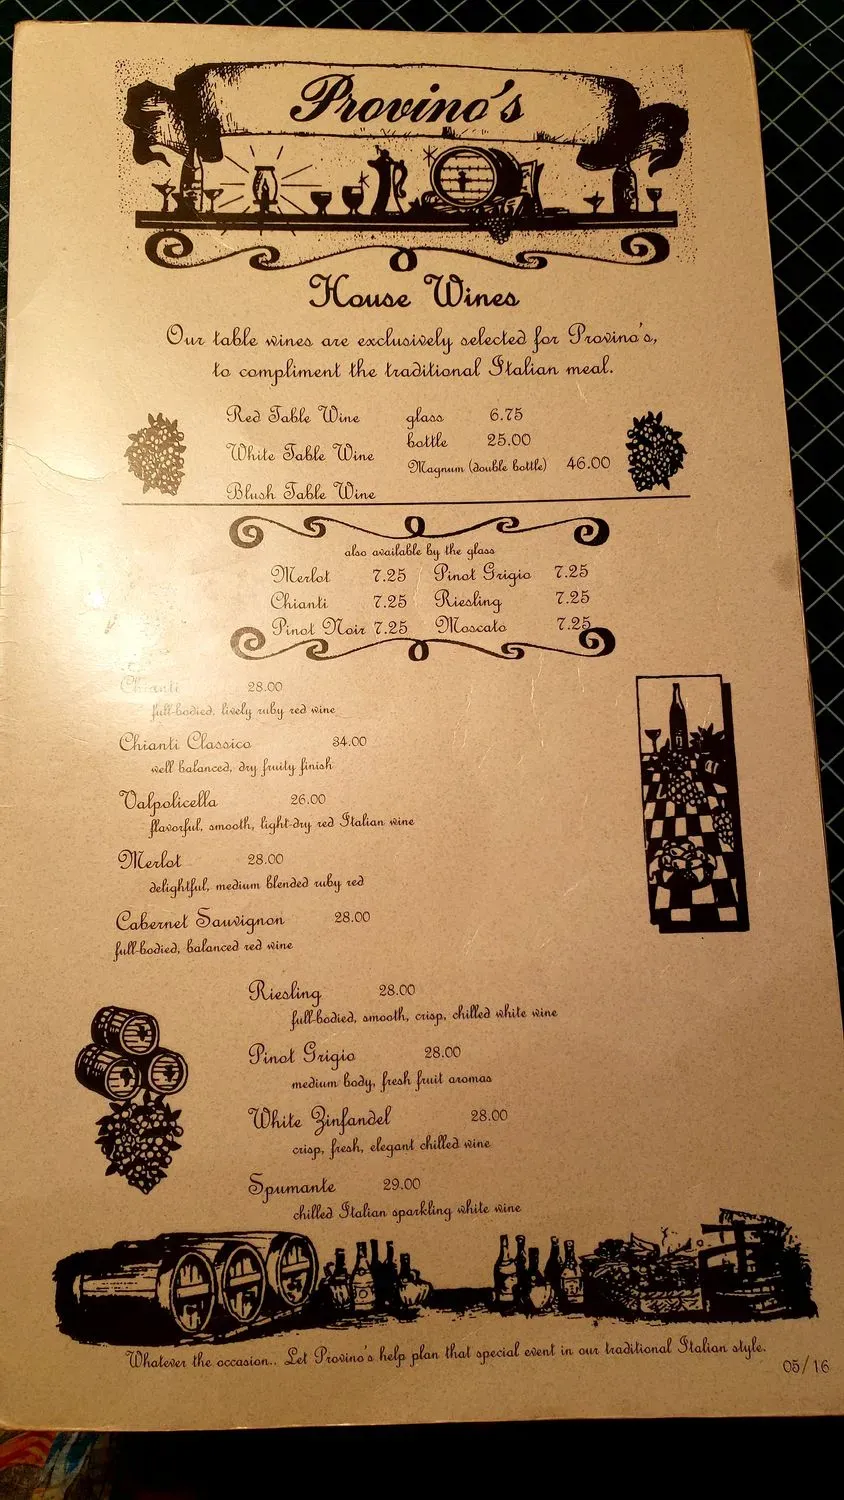 Provino's
House Wines
Our table wines are exclusively selected for Provino's,
to compliment the traditional Italian meal.
Red Table Wine glass 6.75
bottle 25.00
White Table Wine
Magnum (double bottle) 46.00
Blush Table Wine
also available by the glass
Merlot 7.25 Pinot Grigio 7.25
Chianti 7.25 Riesling 7.25
Pinot Noir 7.25 Moscato 7.25
Chianti 28.00
full-bodied, lively ruby red wine
Chianti Classico 34.00
well balanced, dry fruity finish
Valpolicella 26.00
flavorful, smooth, light-dry red Italian wine
Merlot 28.00
delightful, medium blended ruby red
Cabernet Sauvignon 28.00
full-bodied, balanced red wine
Riesling 28.00
full-bodied, smooth, crisp, chilled white wine
Pinot Grigio 28.00
medium body, fresh fruit aromas
White Zinfandel 28.00
crisp, fresh, elegant chilled wine
Spumante 29.00
chilled Italian sparkling white wine
Whatever the occasion.. Let Provino's help plan that special event in our traditional Italian style.
05/16